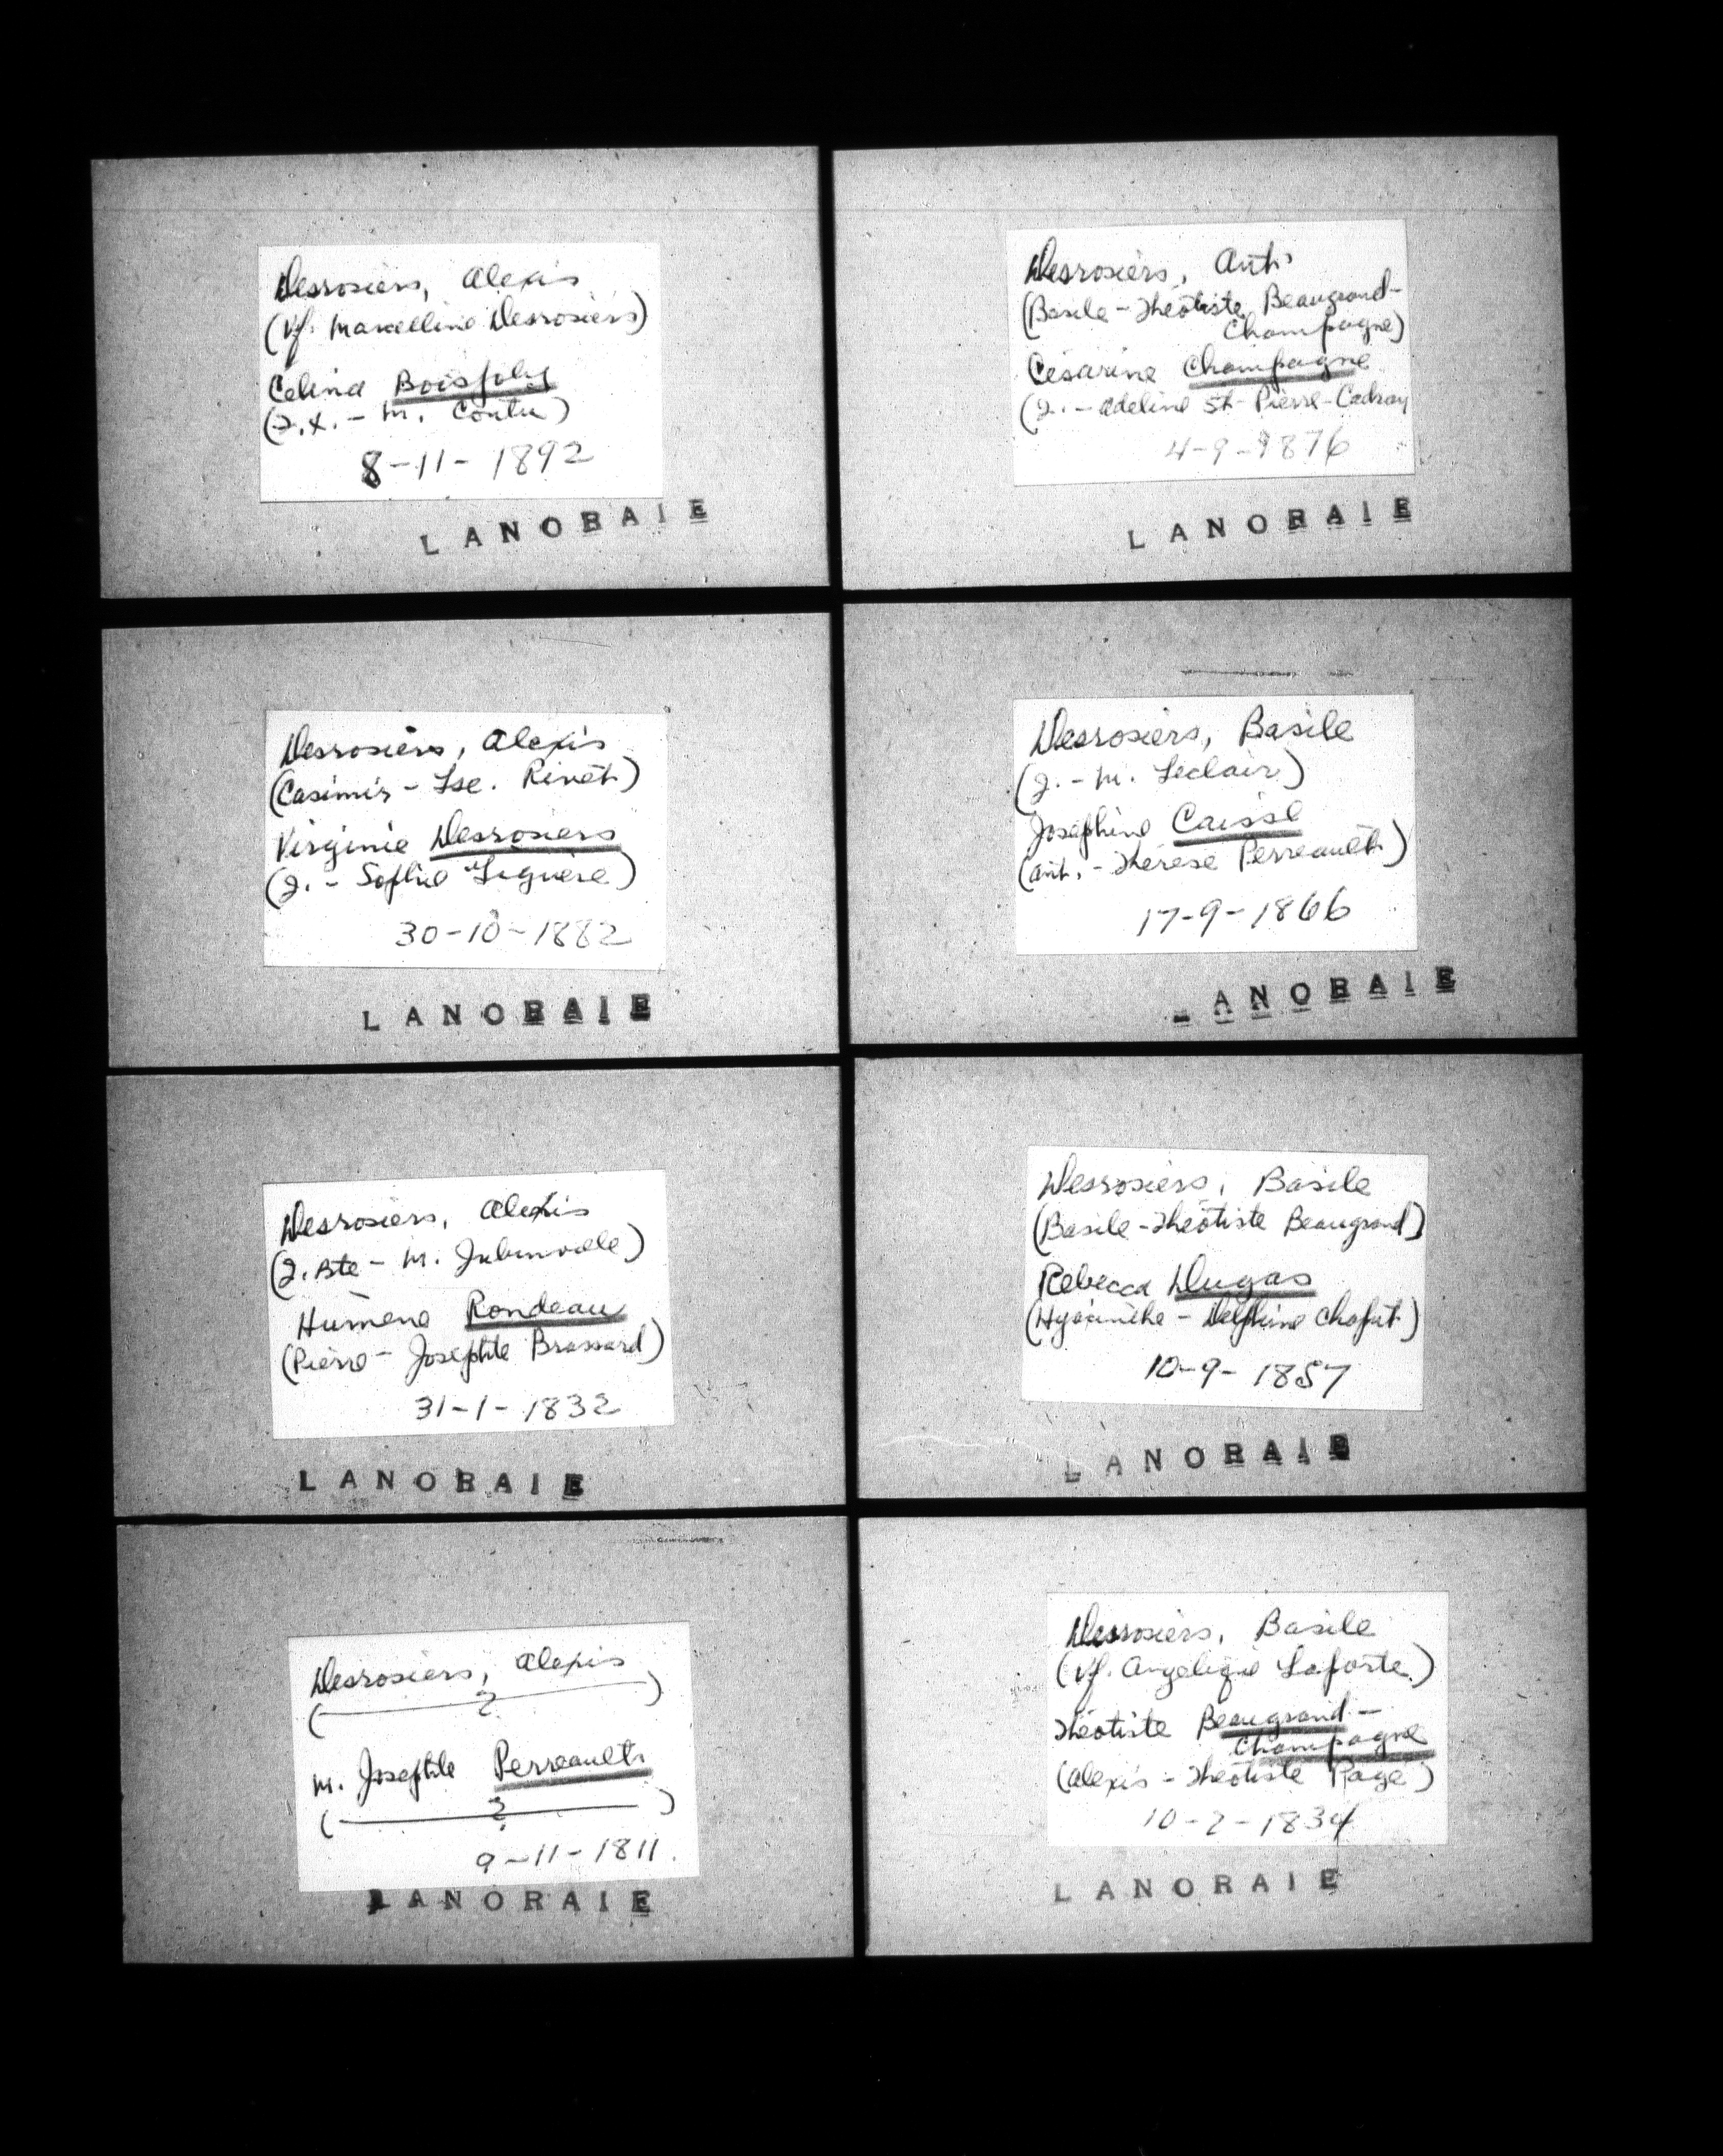 Desrosiers, Alexis
(Vf. Marcelline Desrosiers)
Celina Boisjoly
(F.X. - M. Coutu)
8-11-1892
LANORAIE
Desrosiers, Alexis
(Casimir - Lse. Rivet)
Virginie Desrosiers
(J. - Sophie Laguère)
30-10-1882
LANORAIE
Desrosiers, Alexis
(J. Bte - M. Jubinville)
Humène Rondeau
(Pierre - Josephte Brassard)
31-1-1832
LANORAIE
Desrosiers, Alexis
( ? )
M. Josephte Perreault
( ? )
9-11-1811.
LANORAIE
Desrosiers, Ant.
(Basile - Théotiste Beaugrand-
Champagne)
Césarine Champagne
(J. - Adeline St-Pierre-Cadray
4-9-1876
LANORAIE
Desrosiers, Basile
(J. - M. Leclair)
Josephine Caisse
(Ant. - Thérèse Perreault)
17-9-1866
ANORAIE
Desrosiers, Basile
(Basile - Théotiste Beaugrand)
Rebecca Dugas
(Hyacinthe - Delphine Chaput)
10-9-1857
LANORAIE
Desrosiers, Basile
(Vf. Angelique Laforte)
Théotiste Beaugrand-
Champagne
(Alexis - Théotiste Page)
10-2-1834
LANORAIE